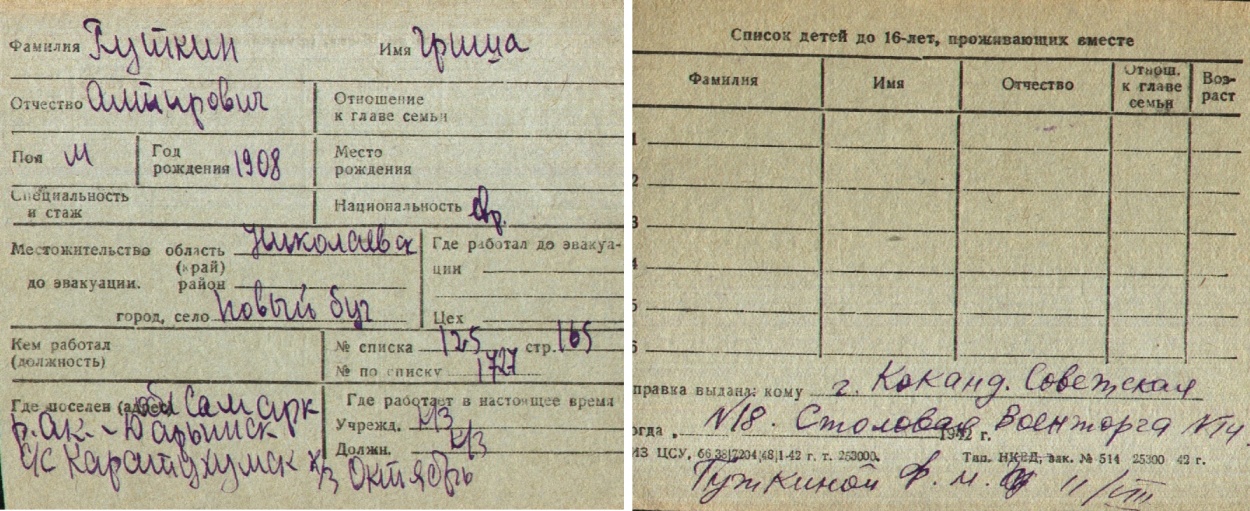 Фамилия Гуткин Имя Гриша
Отчество Отношение
к главе семьи
Пол М Год
рождения 1908 Место
рождения
Специальность
и стаж Национальность евр.
Местожительство область Николаевск
(край)
до эвакуации. район
город, село Новый Буг
Где работал до эвакуа-
ции
Цех
Кем работал
(должность)
№ списка 125 стр. 165
№ по списку 1727
Где поселен (адрес) обл Самарк
р. Ак.-Дарьинск
с/с к/з Октябрь
Где работает в настоящее время
Учрежд. к/з
Должн. к/з
Список детей до 16-лет, проживающих вместе
Фамилия Имя Отчество Отнош.
к главе
семьи Воз-
раст
1
2
3
4
5
6
правка выдана: кому г. Коканд. Советская
огда „ N18. Столовая Военторга N14
1942 г.
ИЗ ЦСУ, 66 38|7204|68|1-42 г. т. 253000. Тип. НКВД, зак. № 514 25300 42 г.
Гуткиной Ф. М. 11/VIII